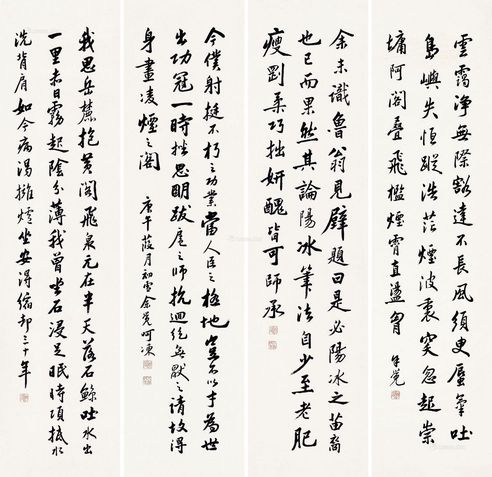 雲靄淨無際豁達不長風須臾蜃氣吐
島嶼失恒蹤浩茫煙波裏突忽起崇
墉阿閣疊飛檻煙霄直盪胷 余覺
余未識魯翁見壁題曰是必陽冰之苗裔
也已而果然其論陽冰筆法自少至老肥
瘦剛柔巧拙妍醜皆可師承
今僕射挺不朽之功業當人臣之極地豈不以才為世
出功冠一時挫思明跋扈之師抗迴紇無厭之請故得
身畫凌煙之閣 庚午葭月初雪余覺呵凍
我思岳麓抱黃閣飛泉元在半天落石鯨吐水出
一里赤日霧起陰分薄我曾坐石浸足眠時項抵水
洗背肩如今病渴擁爐坐安得縮却三十年